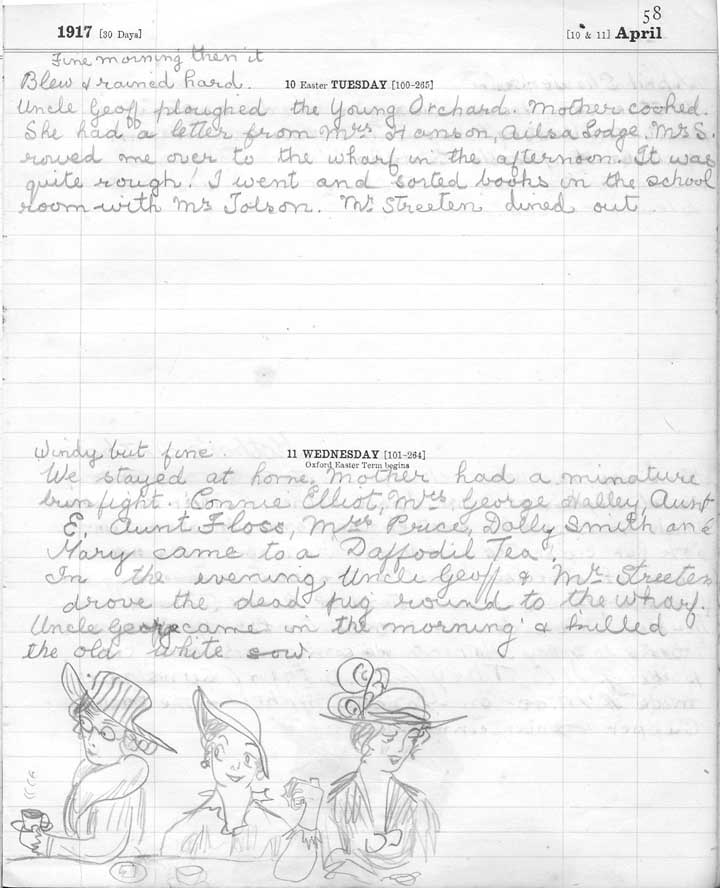 58
1917 [30 Days] [10 & 11] April
Fine morning then it
Blew & rained hard. 10 Easter TUESDAY [100-265]
Uncle Geoff ploughed the Young Orchard. Mother cooked.
She had a letter from Mrs Hanson, Ailsa Lodge, Mr S.
rowed me over to the wharf in the afternoon. It was
quite rough! I went and sorted books in the school
room with Mr Tolson. Mr Streeten dined out
Windy but fine. 11 WEDNESDAY [101-264]
Oxford Easter Term begins
We stayed at home, Mother had a minature
bunfight. Connie Elliot, Mrs George Halley, Aunt
E, Aunt Floss, Mrs Price, Dolly Smith and
Mary came to a Daffodil Tea.
In the evening, Uncle Geoff & Mr Streeten
drove the dead pig round to the wharf.
Uncle George came in the morning & killed
the old white sow.